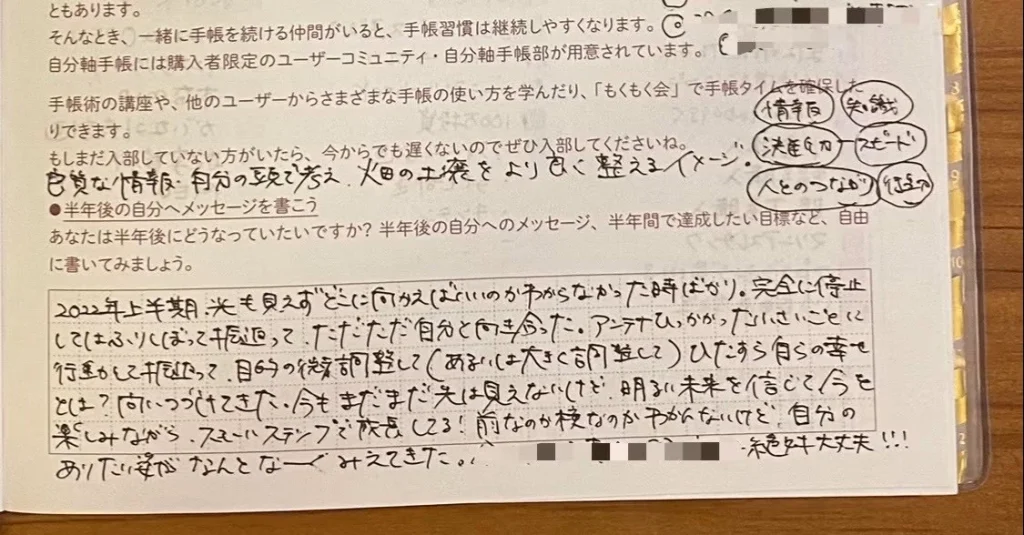 ともあります。
そんなとき、一緒に手帳を続ける仲間がいると、手帳習慣は継続しやすくなります。
自分軸手帳には購入者限定のユーザーコミュニティ・自分軸手帳部が用意されています。
手帳術の講座や、他のユーザーからさまざまな手帳の使い方を学んだり、「もくもく会」で手帳タイムを確保した
りできます。
情報 知識
もしまだ入部していない方がいたら、今からでも遅くないのでぜひ入部してくださいね。
決断力 スピード
良質な情報・自分の頭で考え、畑の土壌をより良く整えるイメージ・
人とのつながり 行動力
●半年後の自分へメッセージを書こう
あなたは半年後にどうなっていたいですか? 半年後の自分へのメッセージ、半年間で達成したい目標など、自由
に書いてみましょう。
2022年上半期、光も見えずどこに向かえばいいのかわからなかった時ばかり。完全に停止
してはふりしぼって振返って、ただただ自分と向き合った。アンテナひっかかったちいさいことに
行動かして振返って、目的の微調整して(あるいは大きく調整して)ひたすら自らの幸せ
とは?向いつづけてきた。今もまだまだ先は見えないけど、明るい未来を信じて今を
楽しみながら、スモールステップで成長してる!前なのか横なのかわかんないけど、自分の
ありたい姿がなんとなーくみえてきた。
絶対大丈夫!!!